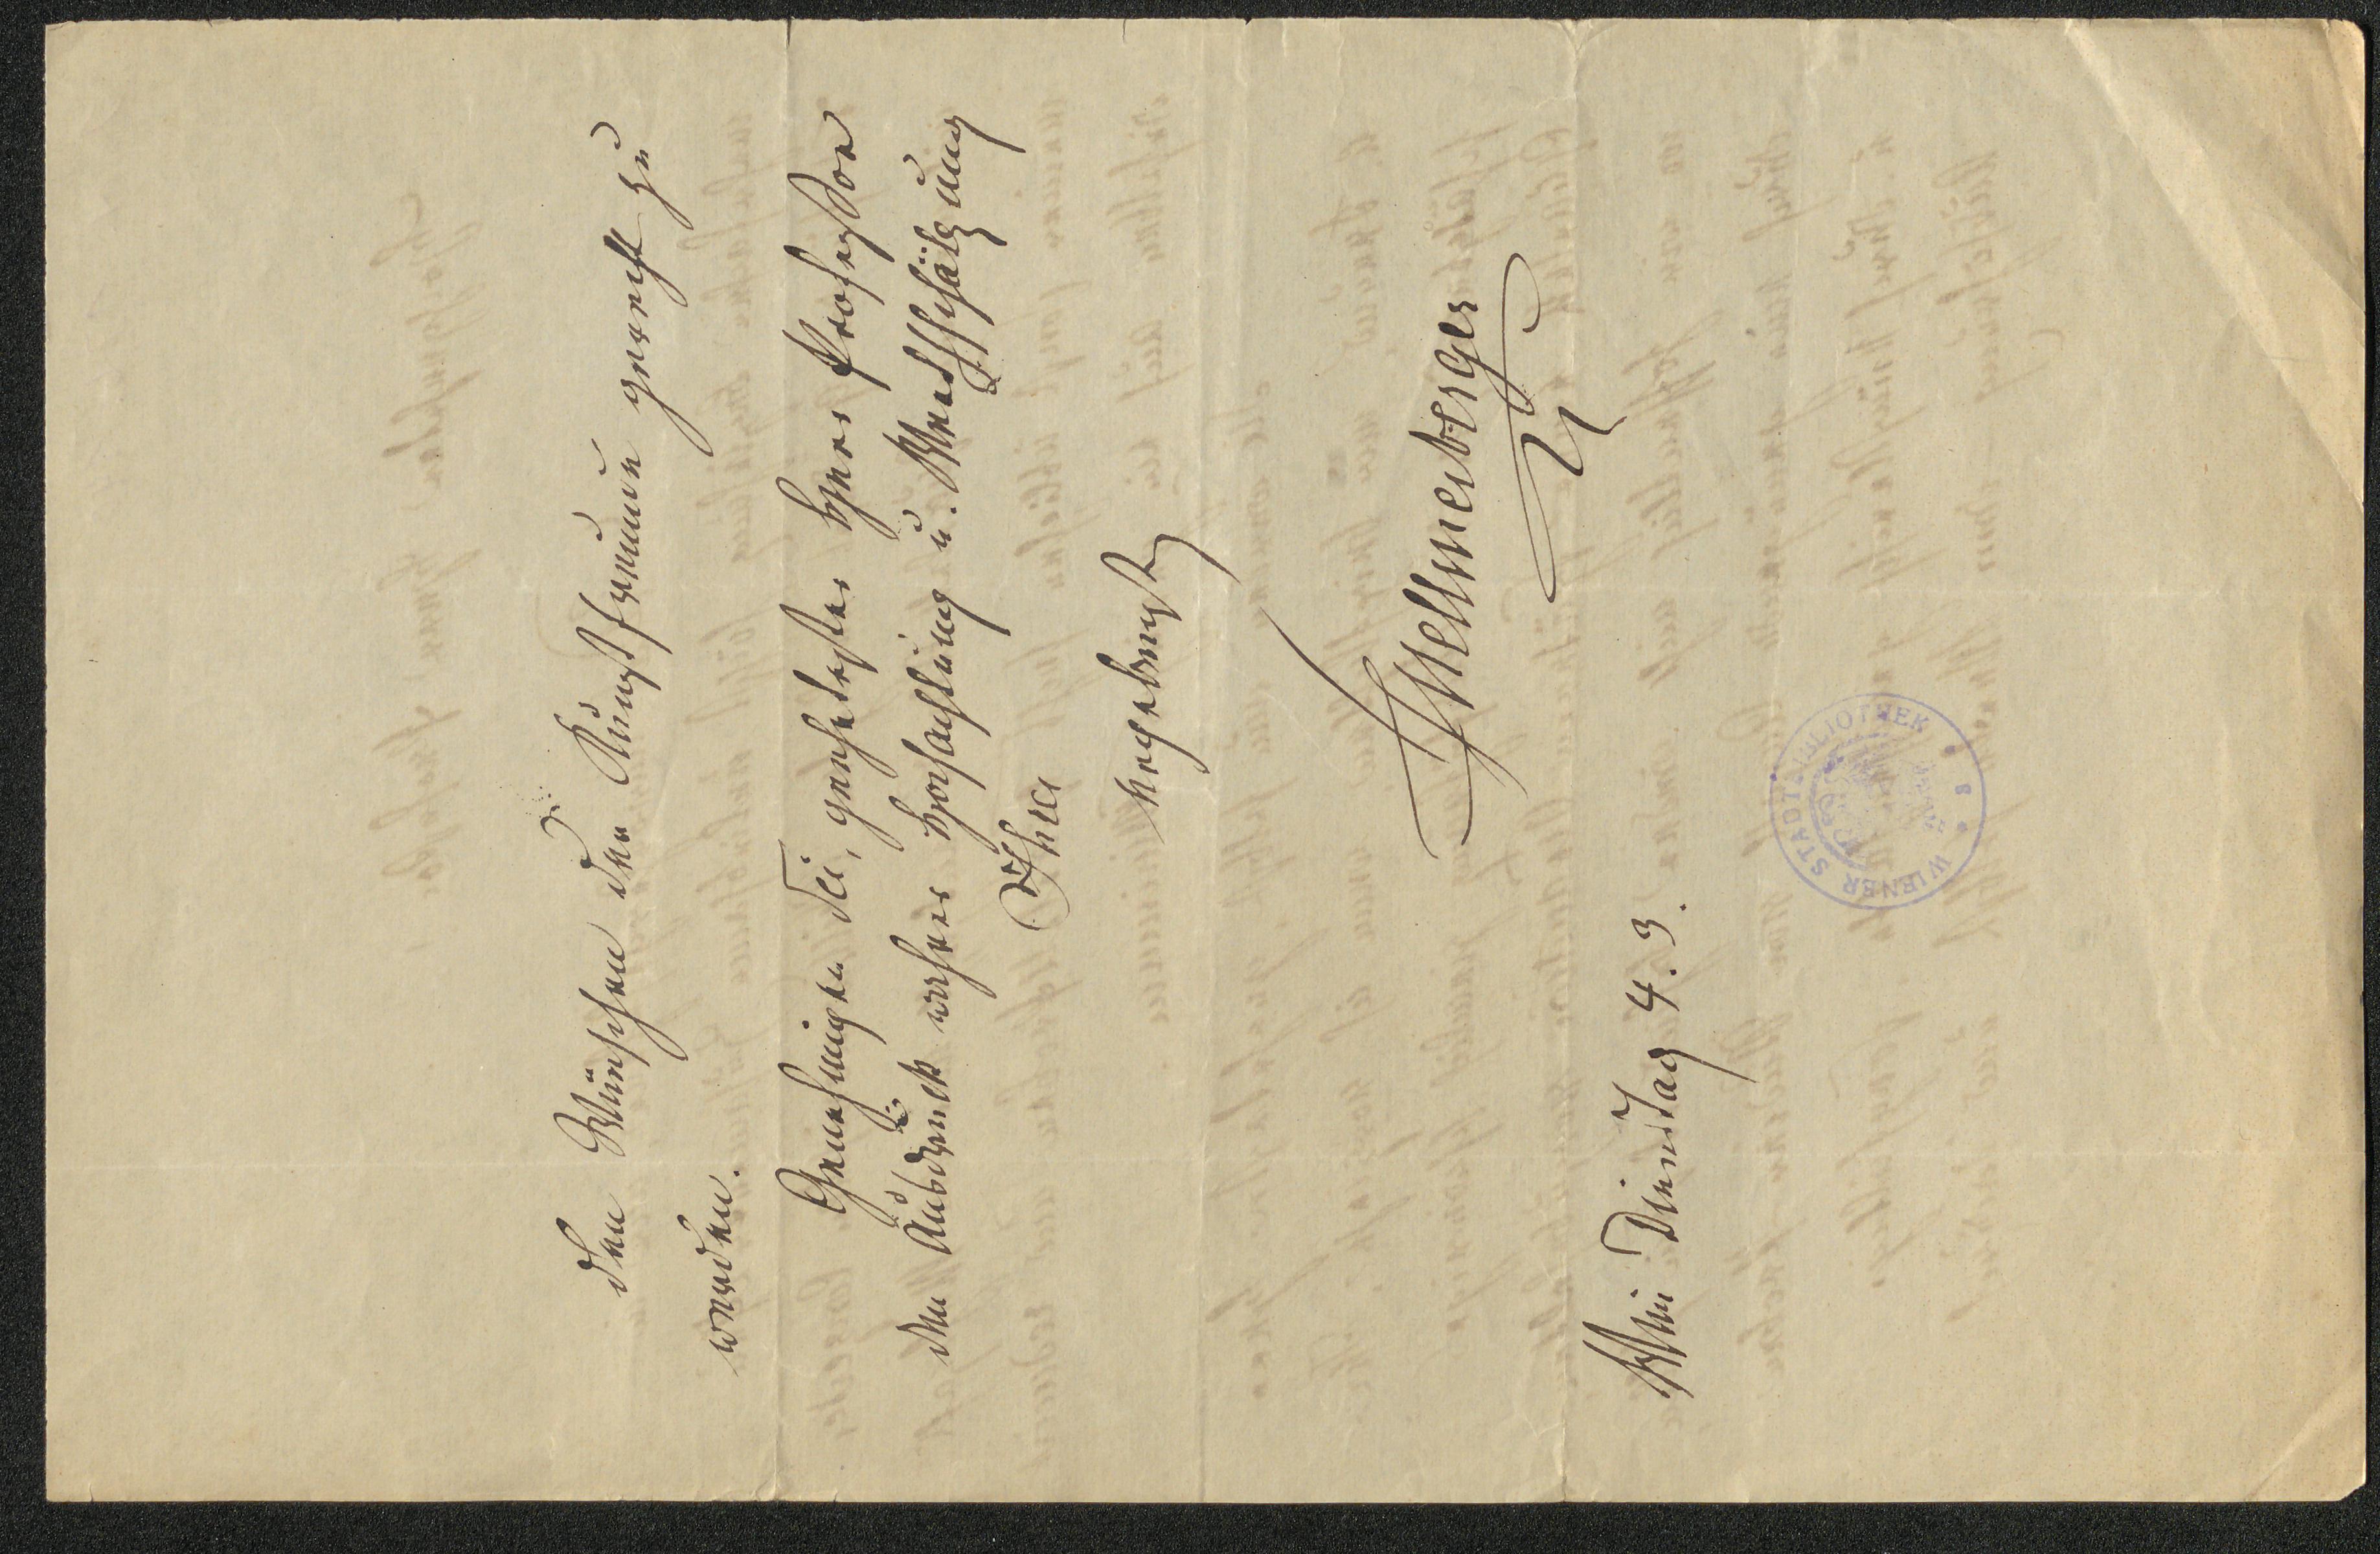 den Wünschen der Kunstfreunde gerecht zu
werden.
Genehmigen Sie, geehrtester Herr Professor
den Ausdruck wahrer Hochachtung u. Werthschätzung
Ihres
ergebensten
Hellmesberger
Wien Dienstag 4. 3.
WIENER STADTBIBLIOTHEK